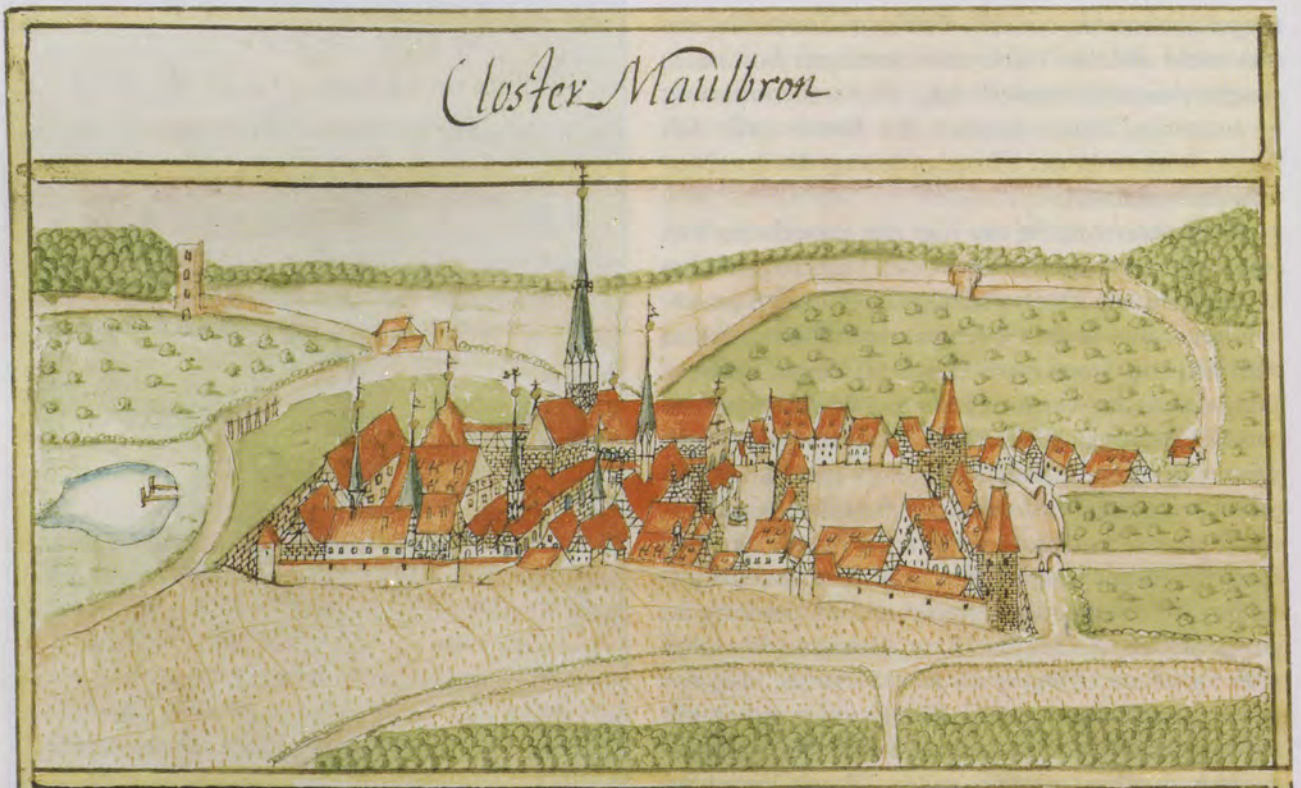 Closter Maulbron